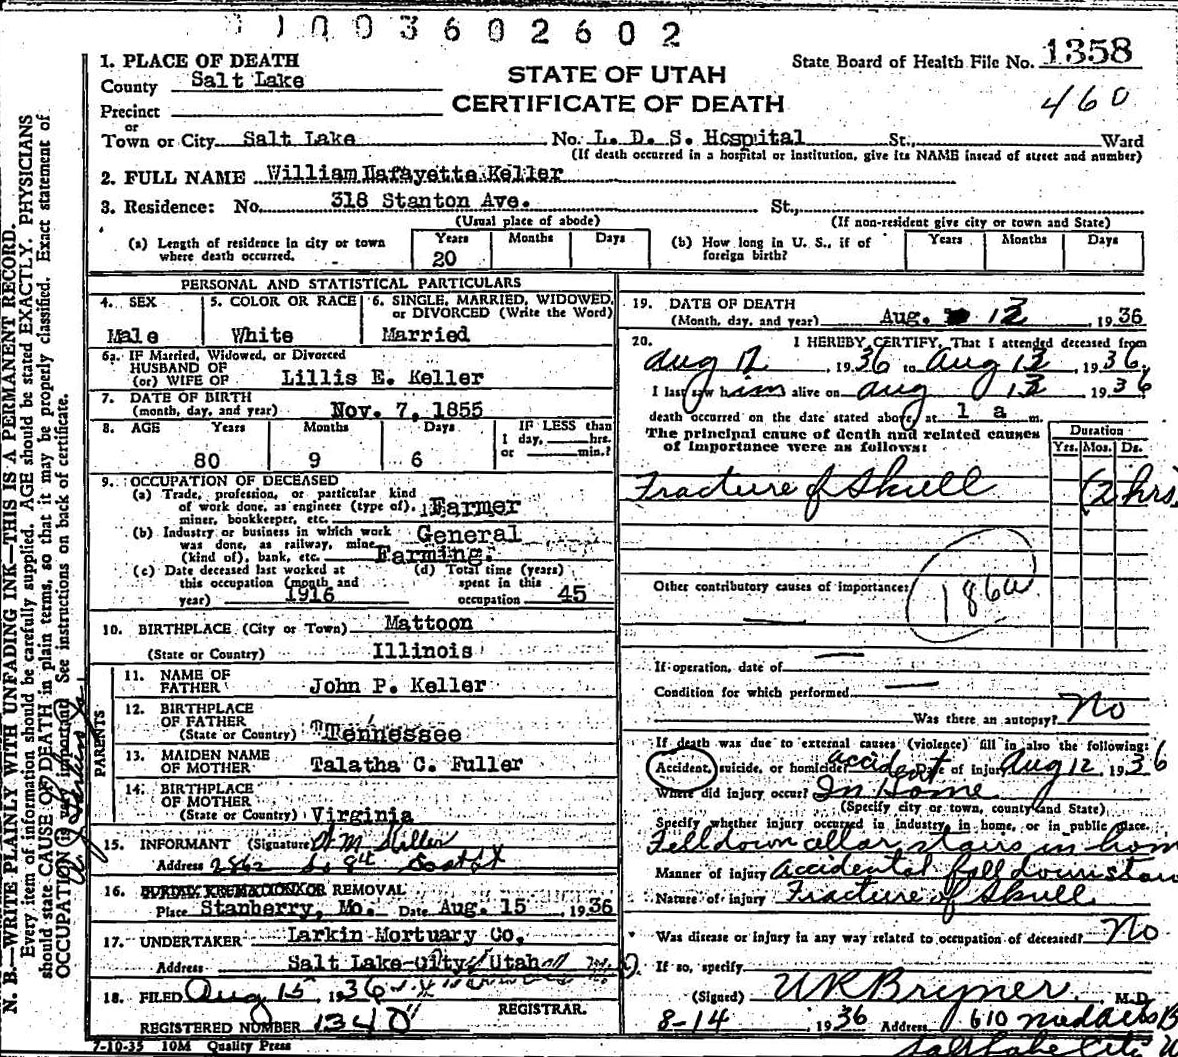 1003602602
1. PLACE OF DEATH
County Salt Lake
STATE OF UTAH
CERTIFICATE OF DEATH
State Board of Health File No. 1358
460
Precinct
or
Town or City Salt Lake No. L. D. S. Hospital St., Ward
(If death occurred in a hospital or institution, give its NAME instead of street and number)
2. FULL NAME William Lafayette Keller
3. Residence: No. 318 Stanton Ave. St.,
(Usual place of abode) (If non-resident give city or town and State)
(a) Length of residence in city or town where death occurred. Years 20 Months Days
(b) How long in U. S., if of foreign birth? Years Months Days
PERSONAL AND STATISTICAL PARTICULARS
4. SEX Male
5. COLOR OR RACE White
6. SINGLE, MARRIED, WIDOWED, or DIVORCED (Write the Word) Married
6a. IF Married, Widowed, or Divorced
HUSBAND OF
(or) WIFE OF Lillis E. Keller
7. DATE OF BIRTH
(month, day, and year) Nov. 7, 1855
8. AGE Years Months Days IF LESS than
1 day, hrs.
or min.?
80 9 6
9. OCCUPATION OF DECEASED
(a) Trade, profession, or particular kind
of work done, as engineer (type of),
miner, bookkeeper, etc. Farmer
(b) Industry or business in which work
was done, as railway, mine
(kind of), bank, etc. General Farming.
(c) Date deceased last worked at
this occupation (month and
year) 1916
(d) Total time (years)
spent in this
occupation 45
10. BIRTHPLACE (City or Town) Mattoon
(State or Country) Illinois
PARENTS
11. NAME OF
FATHER John P. Keller
12. BIRTHPLACE
OF FATHER
(State or Country) Tennessee
13. MAIDEN NAME
OF MOTHER Talatha C. Fuller
14. BIRTHPLACE
OF MOTHER
(State or Country) Virginia
15. INFORMANT (Signature) Keller
Address 2862 So 8th East St
16. BURIAL CREMATION OR REMOVAL
Place Stanberry, Mo. Date Aug. 15, 1936
17. UNDERTAKER Larkin Mortuary Co,
Address Salt Lake City, Utah
18. FILED Aug 15, 1936
REGISTRAR.
REGISTERED NUMBER 1340
7-10-35 10M Quality Press
19. DATE OF DEATH
(Month, day, and year) Aug. 13, 1936
20. I HEREBY CERTIFY, That I attended deceased from
Aug 12, 1936 to Aug 13, 1936.
I last saw him alive on Aug 13 1936
death occurred on the date stated above at 1 a m.
The principal cause of death and related causes
of importance were as follows:
Duration
Yrs. Mos. Ds.
Fracture of Skull (2 hrs)
Other contributory causes of importance:
186a
If operation, date of
Condition for which performed
Was there an autopsy? No
If death was due to external causes (violence) fill in also the following:
Accident, suicide, or homicide? accident Date of injury Aug 12, 1936
Where did injury occur? In Home
(Specify city or town, county and State)
Specify whether injury occurred in industry, in home, or in public place.
Fell down cellar stairs in hom
Manner of injury accidental fall downstair
Nature of injury Fracture of Skull
Was disease or injury in any way related to occupation of deceased? No
If so, specify
(Signed) U R Bryner M. D.
8-14, 1936 Address 610 Med Arts B
Salt Lake City U
N. B.—WRITE PLAINLY WITH UNFADING INK—THIS IS A PERMANENT RECORD.
Every item of information should be carefully supplied. AGE should be stated EXACTLY. PHYSICIANS
should state CAUSE OF DEATH in plain terms, so that it may be properly classified. Exact statement of
OCCUPATION is very important. See instructions on back of certificate.